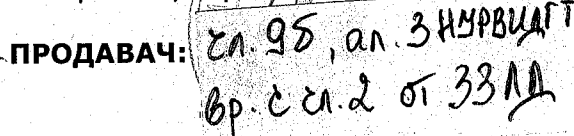 ПРОДАВАЧ: чл. 9б, ал. 3 НУРВИДГТ
вр. с чл. 2 от ЗЗЛД